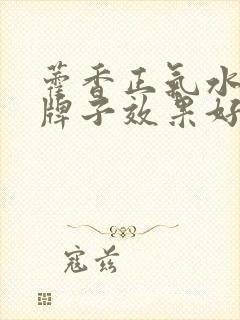 藿香正氣水
牌子效果好
寇兹